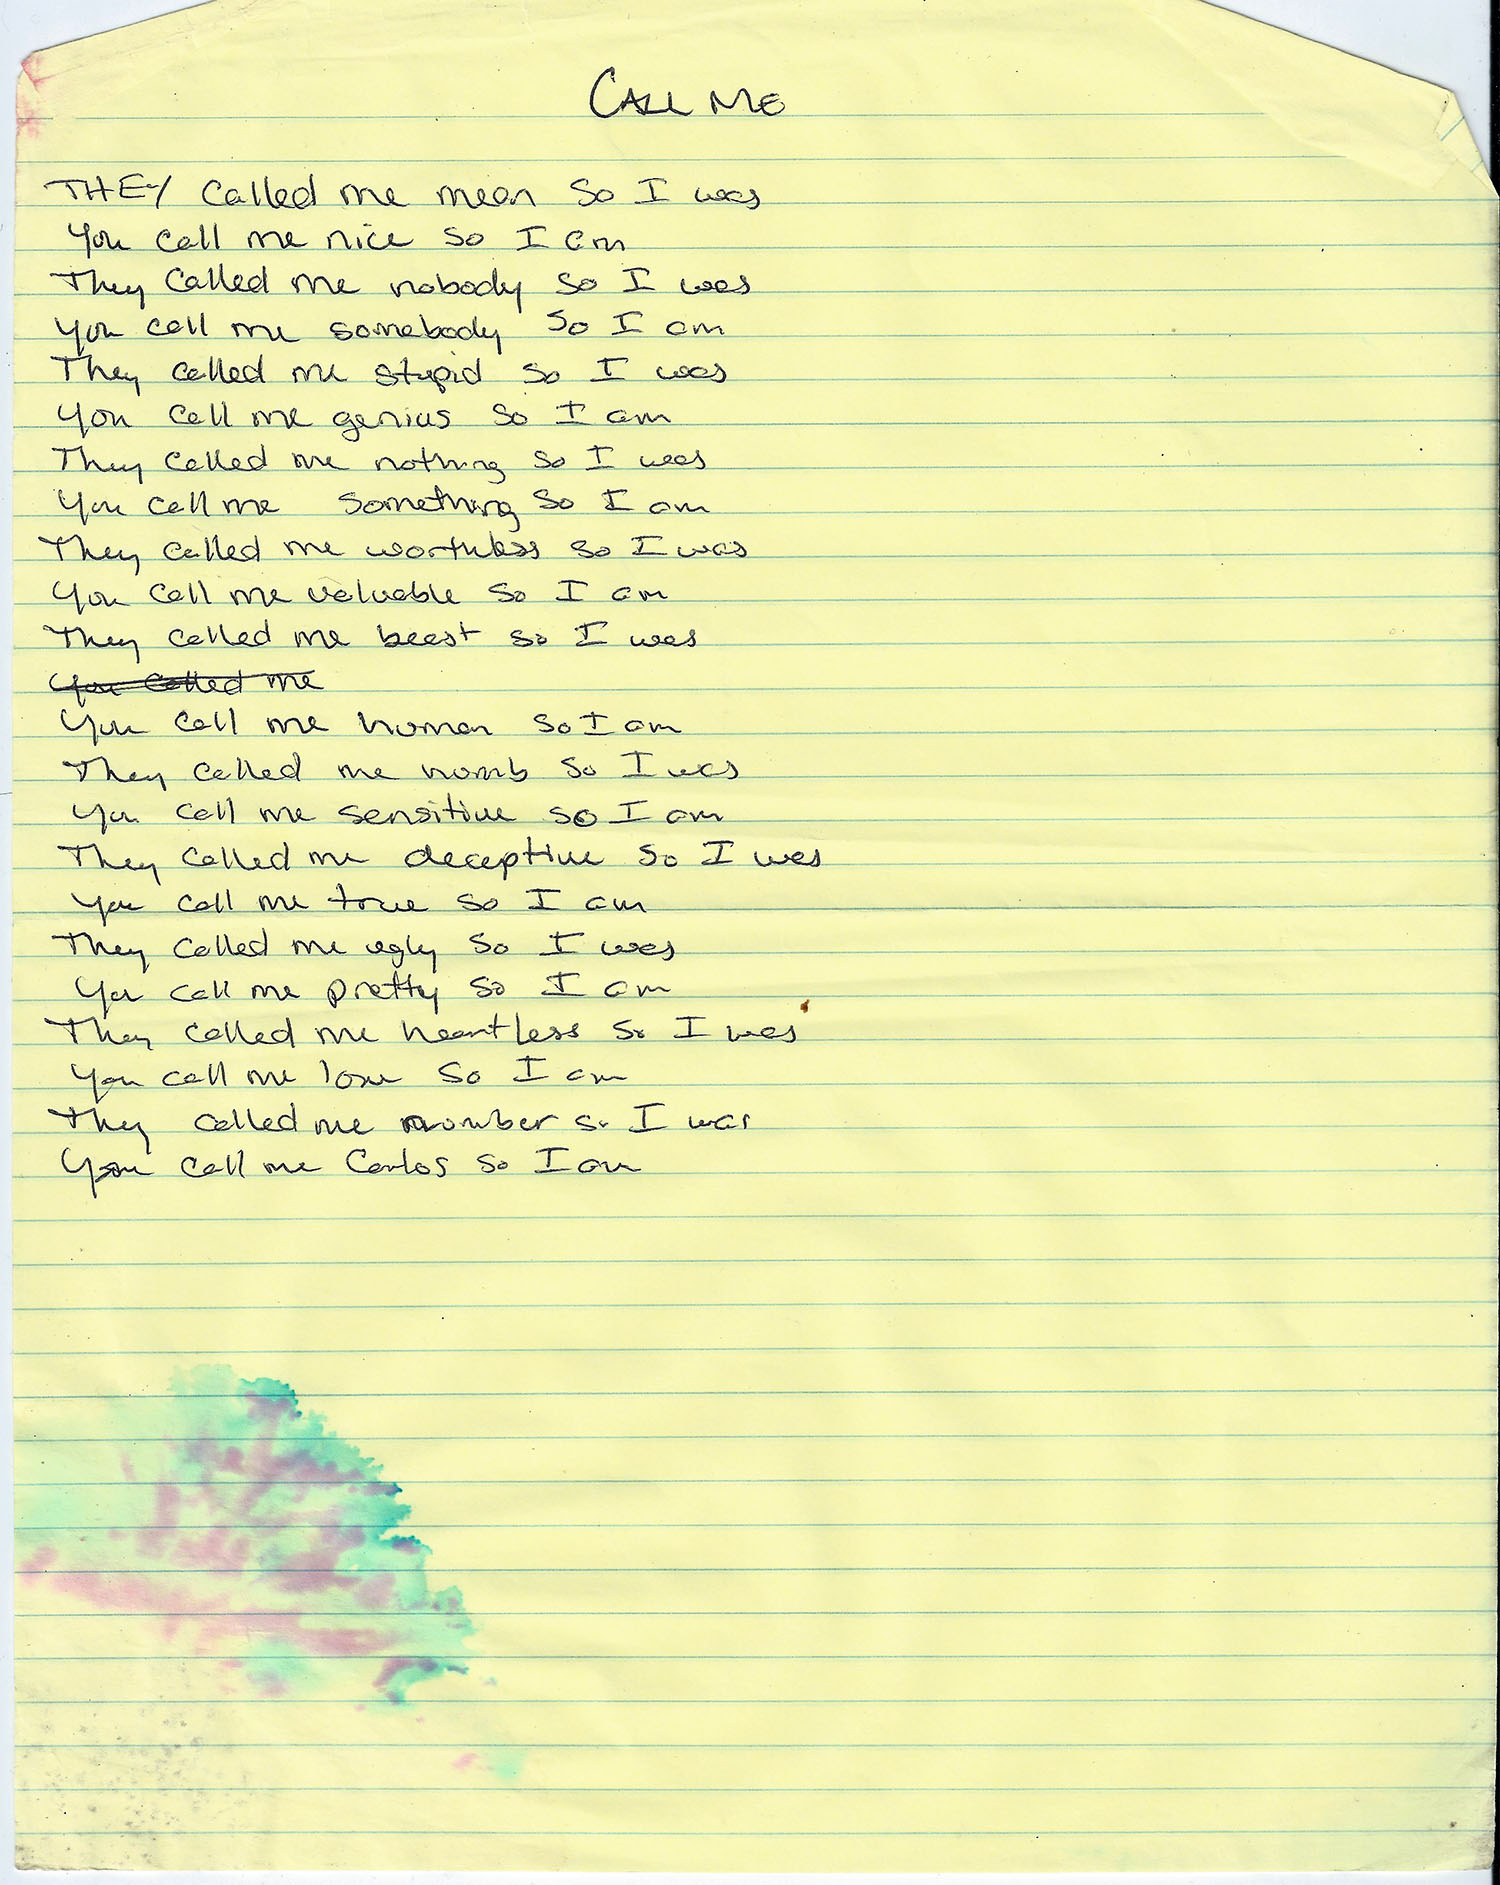 CALL ME
THEY called me mean so I was
You call me nice so I am
They called me nobody so I was
You call me somebody so I am
They called me stupid so I was
You call me genius so I am
They called me nothing so I was
You call me something so I am
They called me worthless so I was
You call me valuable so I am
They called me beast so I was
You called me
You call me human so I am
They called me numb so I was
You call me sensitive so I am
They called me deceptive so I was
You call me true so I am
They called me ugly so I was
You call me pretty so I am
They called me heartless so I was
You call me love so I am
They called me number so I was
You call me Carlos so I am